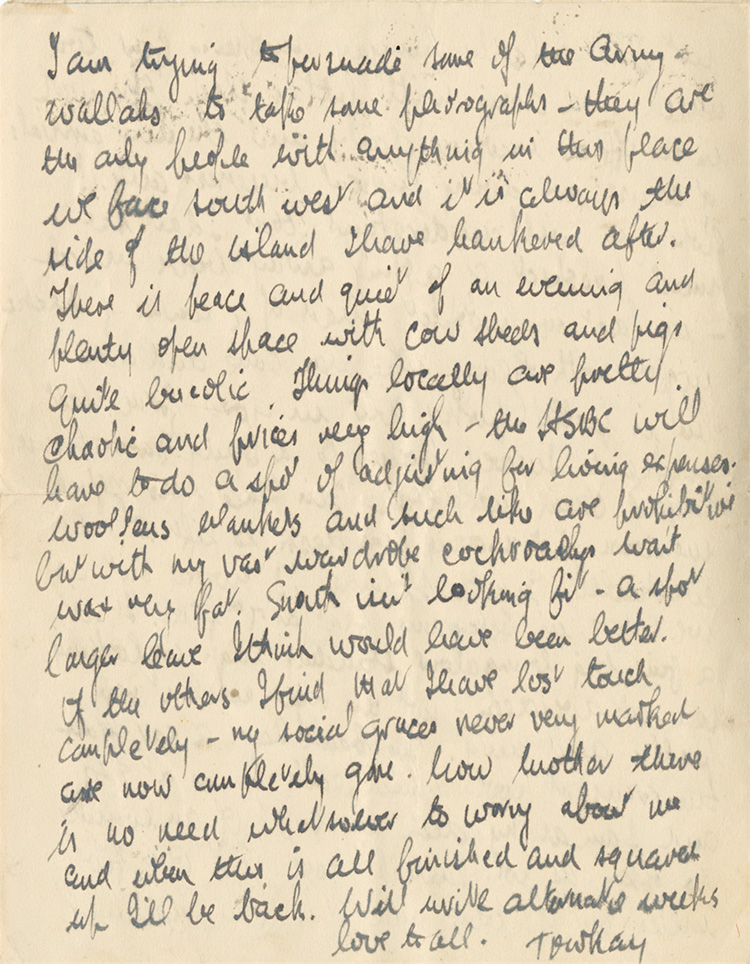 I am trying to persuade some of the Army
wallahs to take some photographs - they are
the only people with anything in this place
we face south west and it is always the
side of the island I have hankered after.
There is peace and quiet of an evening and
plenty open space with cow sheds and pigs
Quite bucolic. Things locally are pretty
chaotic and prices very high - the HSBC will
have to do a spot of adjusting for living expenses.
Woollens blankets and such like are prohibitive
but with my vast wardrobe cockroaches wait
wax very fat. isn't looking fit - a spot
longer leave I think would have been better.
Of the others I find that I have lost touch
completely - my social graces never very marked
are now completely gone. Now Mother there
is no need whatsoever to worry about me
and when this is all finished and squared
up I'll be back. Will write alternate weeks
love to all. Towkay